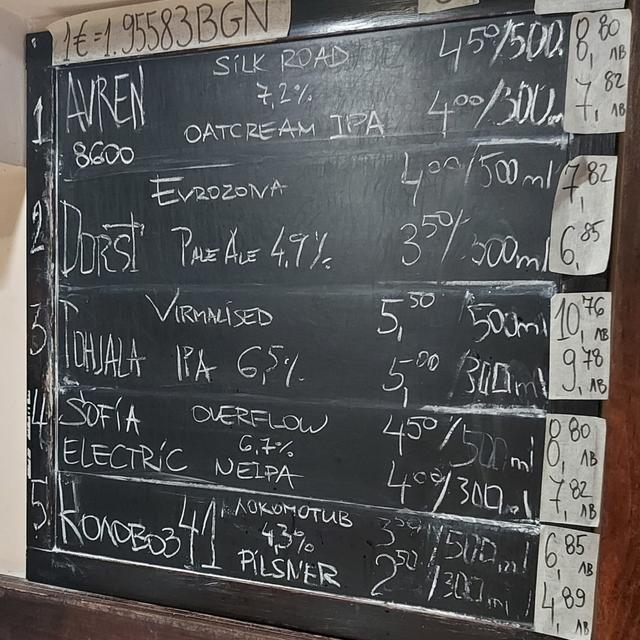 1€=1.95583BGN
1 AVREN 8600 SILK ROAD 4 50/500 8,80 ЛВ
7,2% OATCREAM IPA 4 00/300m 7,82 ЛВ
2 DORST EVROZONA 4 00/500ml 7,82
PALE ALE 4,9% 3 50/300ml 6,85
3 POHJALA VIRMALISED 5,50 500ml 10,76 ЛВ
IPA 6,5% 5,00 /300ml 9,78 ЛВ
4 SOFIA ELECTRIC OVERFLOW 4 50/500ml 8,80 ЛВ
6,7% NEIPA 4 00/300ml 7,82 ЛВ
5 КОЛОВОЗ 41 ЛОКОМОТИВ 3 50/500ml 6,85 ЛВ
4,3% PILSNER 2 50/300ml 4,89 ЛВ